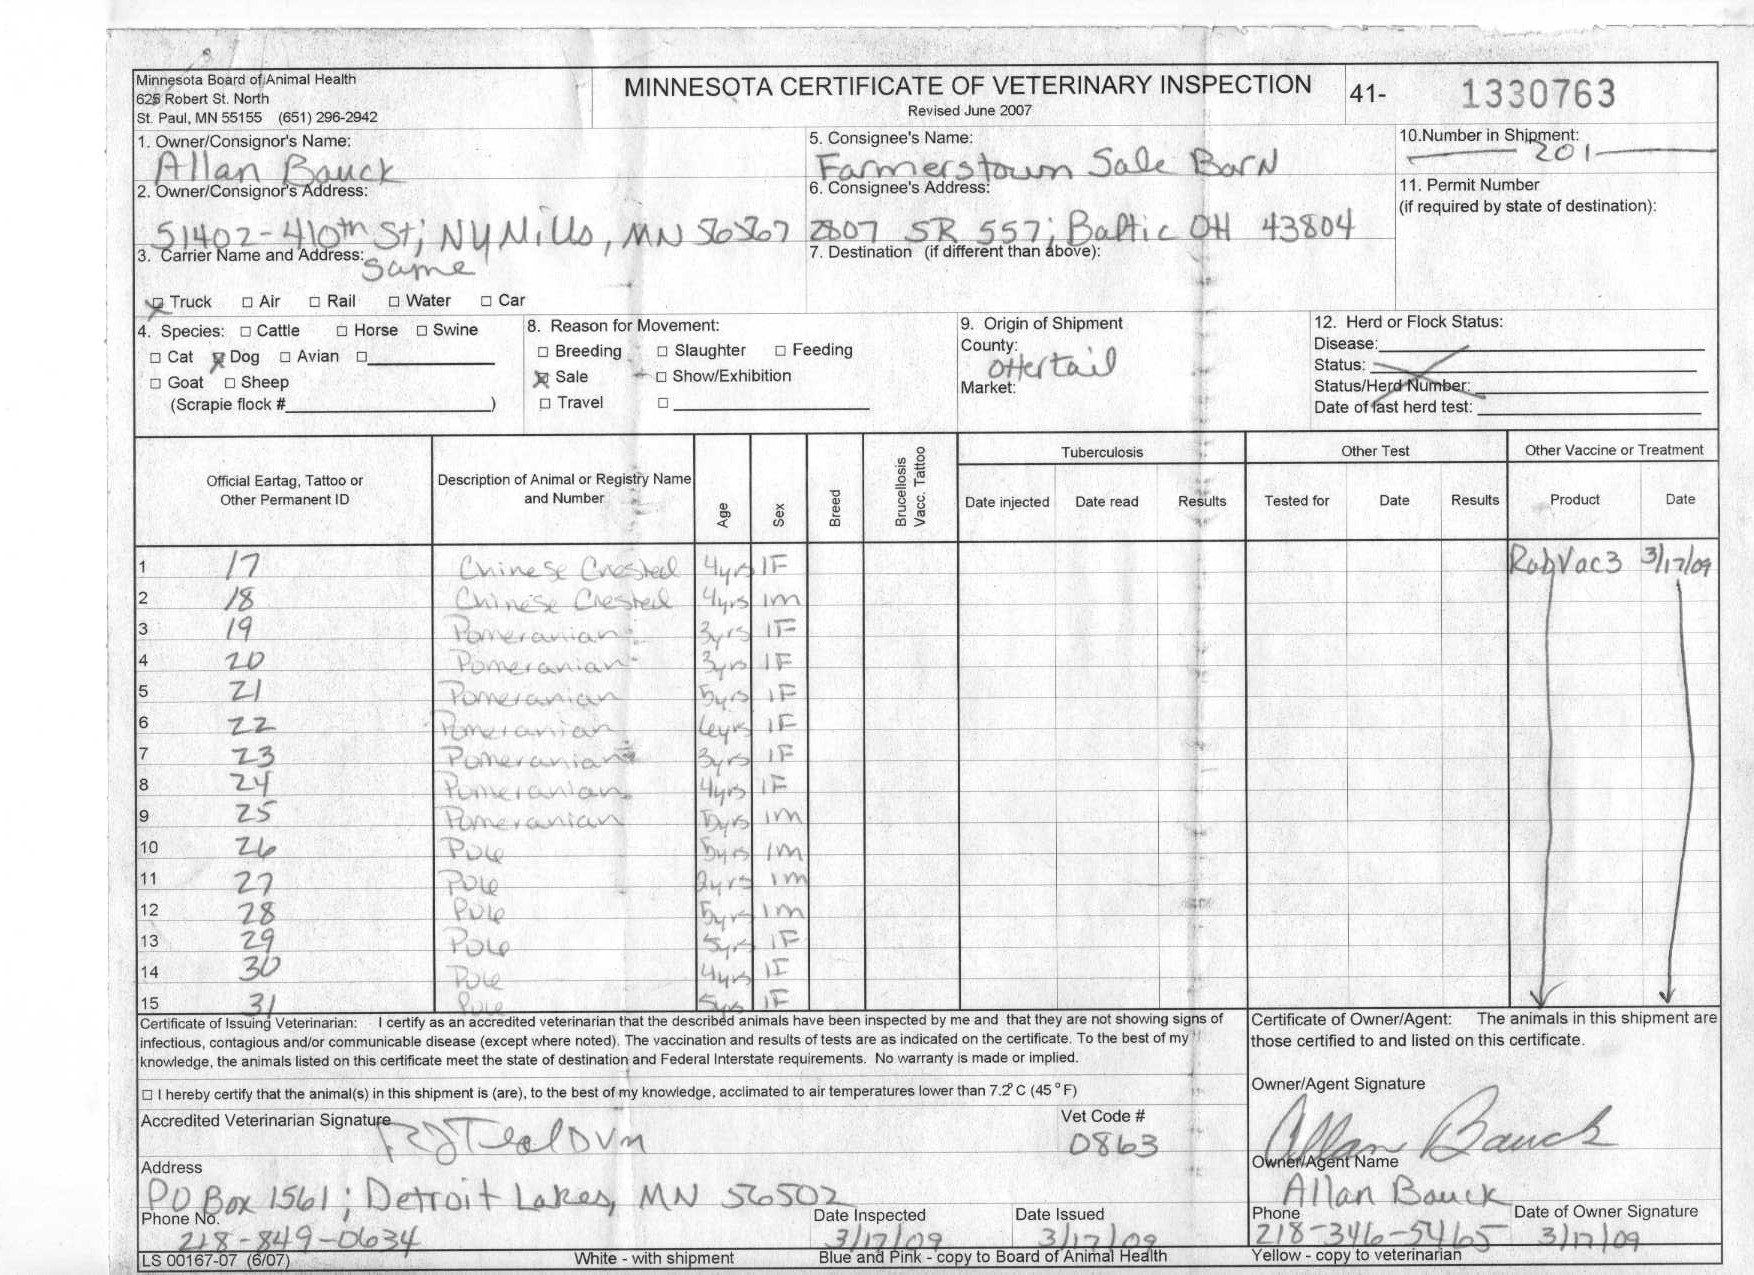 Minnesota Board of Animal Health
625 Robert St. North
St. Paul, MN 55155 (651) 296-2942
MINNESOTA CERTIFICATE OF VETERINARY INSPECTION
Revised June 2007
41- 1330763
1. Owner/Consignor's Name:
Allan Bauck
2. Owner/Consignor's Address:
51402-410th St; NY Mills, MN 56567
3. Carrier Name and Address:
Same
Truck Air Rail Water Car
5. Consignee's Name:
Farmerstown Sale Barn
6. Consignee's Address:
2807 SR 557; Baltic OH 43804
7. Destination (if different than above):
10.Number in Shipment:
201
11. Permit Number
(if required by state of destination):
4. Species: Cattle Horse Swine
Cat Dog Avian
Goat Sheep
(Scrapie flock # )
8. Reason for Movement:
Breeding Slaughter Feeding
Sale Show/Exhibition
Travel
9. Origin of Shipment
County:
Ottertail
Market:
12. Herd or Flock Status:
Disease:
Status:
Status/Herd Number:
Date of last herd test:
Official Eartag, Tattoo or
Other Permanent ID
Description of Animal or Registry Name
and Number
Age
Sex
Breed
Brucellosis
Vacc. Tattoo
Tuberculosis
Date injected Date read Results
Other Test
Tested for Date Results
Other Vaccine or Treatment
Product Date
1 17 Chinese Crested 4yrs 1F RabVac3 3/17/09
2 18 Chinese Crested 4yrs 1m
3 19 Pomeranian 3yrs 1F
4 20 Pomeranian 3yrs 1F
5 21 Pomeranian 5yrs 1F
6 22 Pomeranian 6yrs 1F
7 23 Pomeranian 3yrs 1F
8 24 Pomeranian 4yrs 1F
9 25 Pomeranian 5yrs 1m
10 26 5yrs 1m
11 27 2yrs 1m
12 28 5yrs 1m
13 29 5yrs 1F
14 30 4yrs 1F
15 31 5yrs 1F
Certificate of Issuing Veterinarian: I certify as an accredited veterinarian that the described animals have been inspected by me and that they are not showing signs of
infectious, contagious and/or communicable disease (except where noted). The vaccination and results of tests are as indicated on the certificate. To the best of my
knowledge, the animals listed on this certificate meet the state of destination and Federal Interstate requirements. No warranty is made or implied.
I hereby certify that the animal(s) in this shipment is (are), to the best of my knowledge, acclimated to air temperatures lower than 7.2° C (45° F)
Certificate of Owner/Agent: The animals in this shipment are
those certified to and listed on this certificate.
Owner/Agent Signature
Allan Bauck
Accredited Veterinarian Signature
DVM
Vet Code #
0863
Owner/Agent Name
Allan Bauck
Address
PO Box 1561; Detroit Lakes, MN 56502
Phone No.
218-849-0634
Date Inspected
3/17/09
Date Issued
3/17/09
Phone
218-346-5465
Date of Owner Signature
3/17/09
LS 00167-07 (6/07) White - with shipment Blue and Pink - copy to Board of Animal Health Yellow - copy to veterinarian